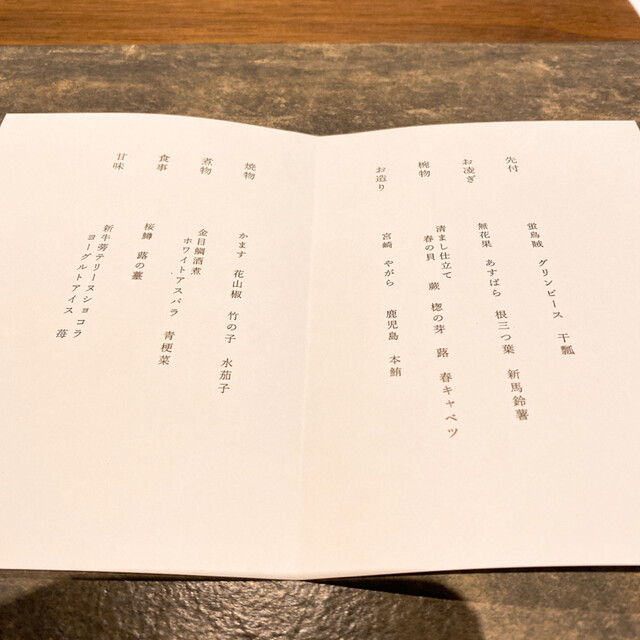 先付
蛍烏賊 グリンピース 干瓢
お凌ぎ
無花果 あすぱら 根三つ葉 新馬鈴薯
椀物
清まし仕立て
春の貝 蕨 楤の芽 蕗 春キャベツ
お造り
宮崎 やがら 鹿児島 本鮪
焼物
かます 花山椒 竹の子 水茄子
煮物
金目鯛酒煮
ホワイトアスパラ 青梗菜
食事
桜鱒 蕗の薹
甘味
新牛蒡テリーヌショコラ
ヨーグルトアイス 苺